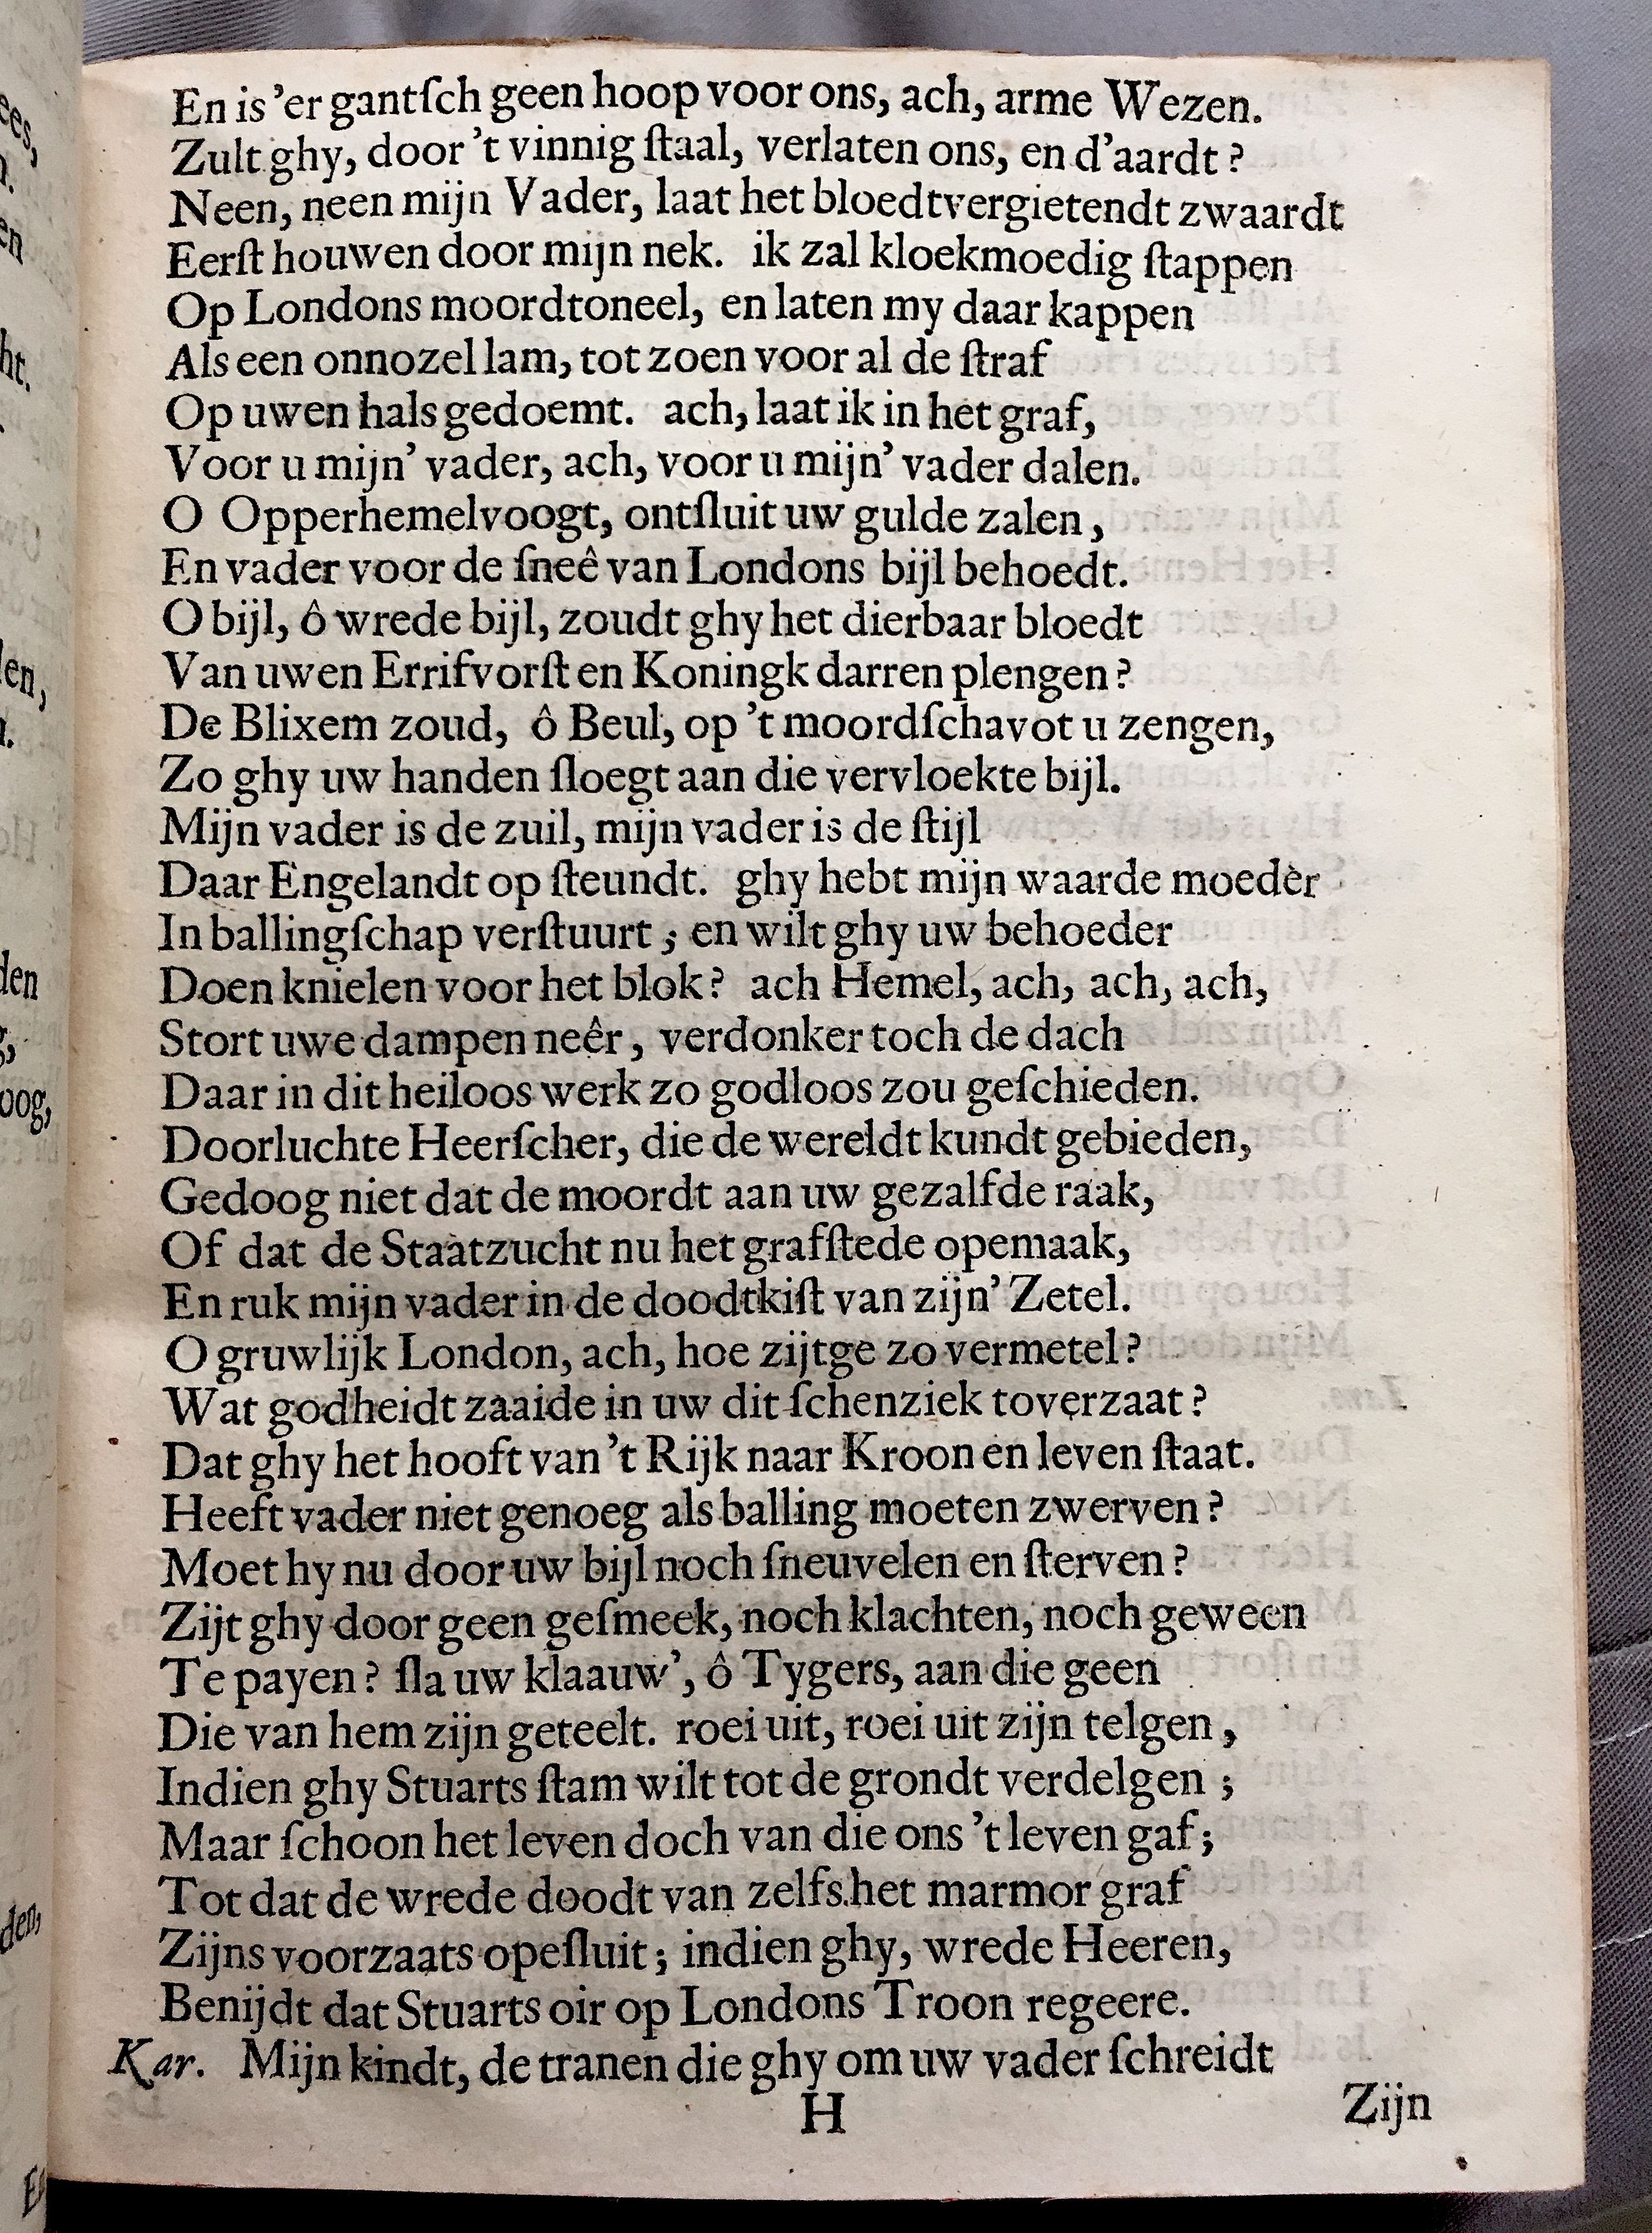 En is 'er gantſch geen hoop voor ons, ach, arme Wezen.
Zult ghy, door 't vinnig ſtaal, verlaten ons, en d'aardt?
Neen, neen mijn Vader, laat het bloedtvergietendt zwaardt
Eerſt houwen door mijn nek. ik zal kloekmoedig ſtappen
Op Londons moordtoneel, en laten my daar kappen
Als een onnozel lam, tot zoen voor al de ſtraf
Op uwen hals gedoemt. ach, laat ik in het graf,
Voor u mijn' vader, ach, voor u mijn' vader dalen.
O Opperhemelvoogt, ontſluit uw gulde zalen,
En vader voor de ſneê van Londons bijl behoedt.
O bijl, ô wrede bijl, zoudt ghy het dierbaar bloedt
Van uwen Errifvorſt en Koningk darren plengen?
De Blixem zoud, ô Beul, op 't moordſchavot u zengen,
Zo ghy uw handen ſloegt aan die vervloekte bijl.
Mijn vader is de zuil, mijn vader is de ſtijl
Daar Engelandt op ſteundt. ghy hebt mijn waarde moeder
In ballingſchap verſtuurt; en wilt ghy uw behoeder
Doen knielen voor het blok? ach Hemel, ach, ach, ach,
Stort uwe dampen neêr, verdonker toch de dach
Daar in dit heiloos werk zo godloos zou geſchieden.
Doorluchte Heerſcher, die de wereldt kundt gebieden,
Gedoog niet dat de moordt aan uw gezalfde raak,
Of dat de Staatzucht nu het grafſtede opemaak,
En ruk mijn vader in de doodtkiſt van zijn' Zetel.
O gruwlijk London, ach, hoe zijtge zo vermetel?
Wat godheidt zaaide in uw dit ſchenziek toverzaat?
Dat ghy het hooft van 't Rijk naar Kroon en leven ſtaat.
Heeft vader niet genoeg als balling moeten zwerven?
Moet hy nu door uw bijl noch ſneuvelen en ſterven?
Zijt ghy door geen geſmeek, noch klachten, noch geween
Te payen? ſla uw klaauw', ô Tygers, aan die geen
Die van hem zijn geteelt. roei uit, roei uit zijn telgen,
Indien ghy Stuarts ſtam wilt tot de grondt verdelgen;
Maar ſchoon het leven doch van die ons 't leven gaf;
Tot dat de wrede doodt van zelfs het marmor graf
Zijns voorzaats opeſluit; indien ghy, wrede Heeren,
Benijdt dat Stuarts oir op Londons Troon regeere.
Kar. Mijn kindt, de tranen die ghy om uw vader ſchreidt
H
Zijn